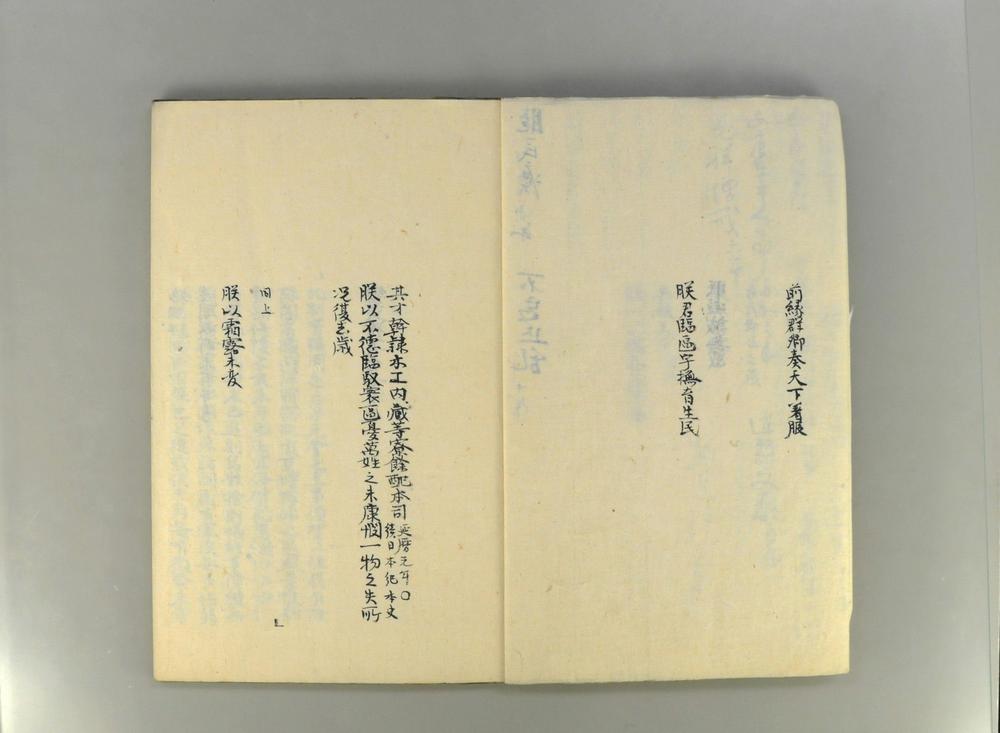 前縁群卿奏天下著服
朕君臨區宇撫育生民
其才幹隷木工内蔵等寮餘配本司
延暦元年〇
続日本紀本文
朕以不徳臨馭寰區憂萬姓之未康憫一物之失所
况復去歳
旧上
朕以霜露未変